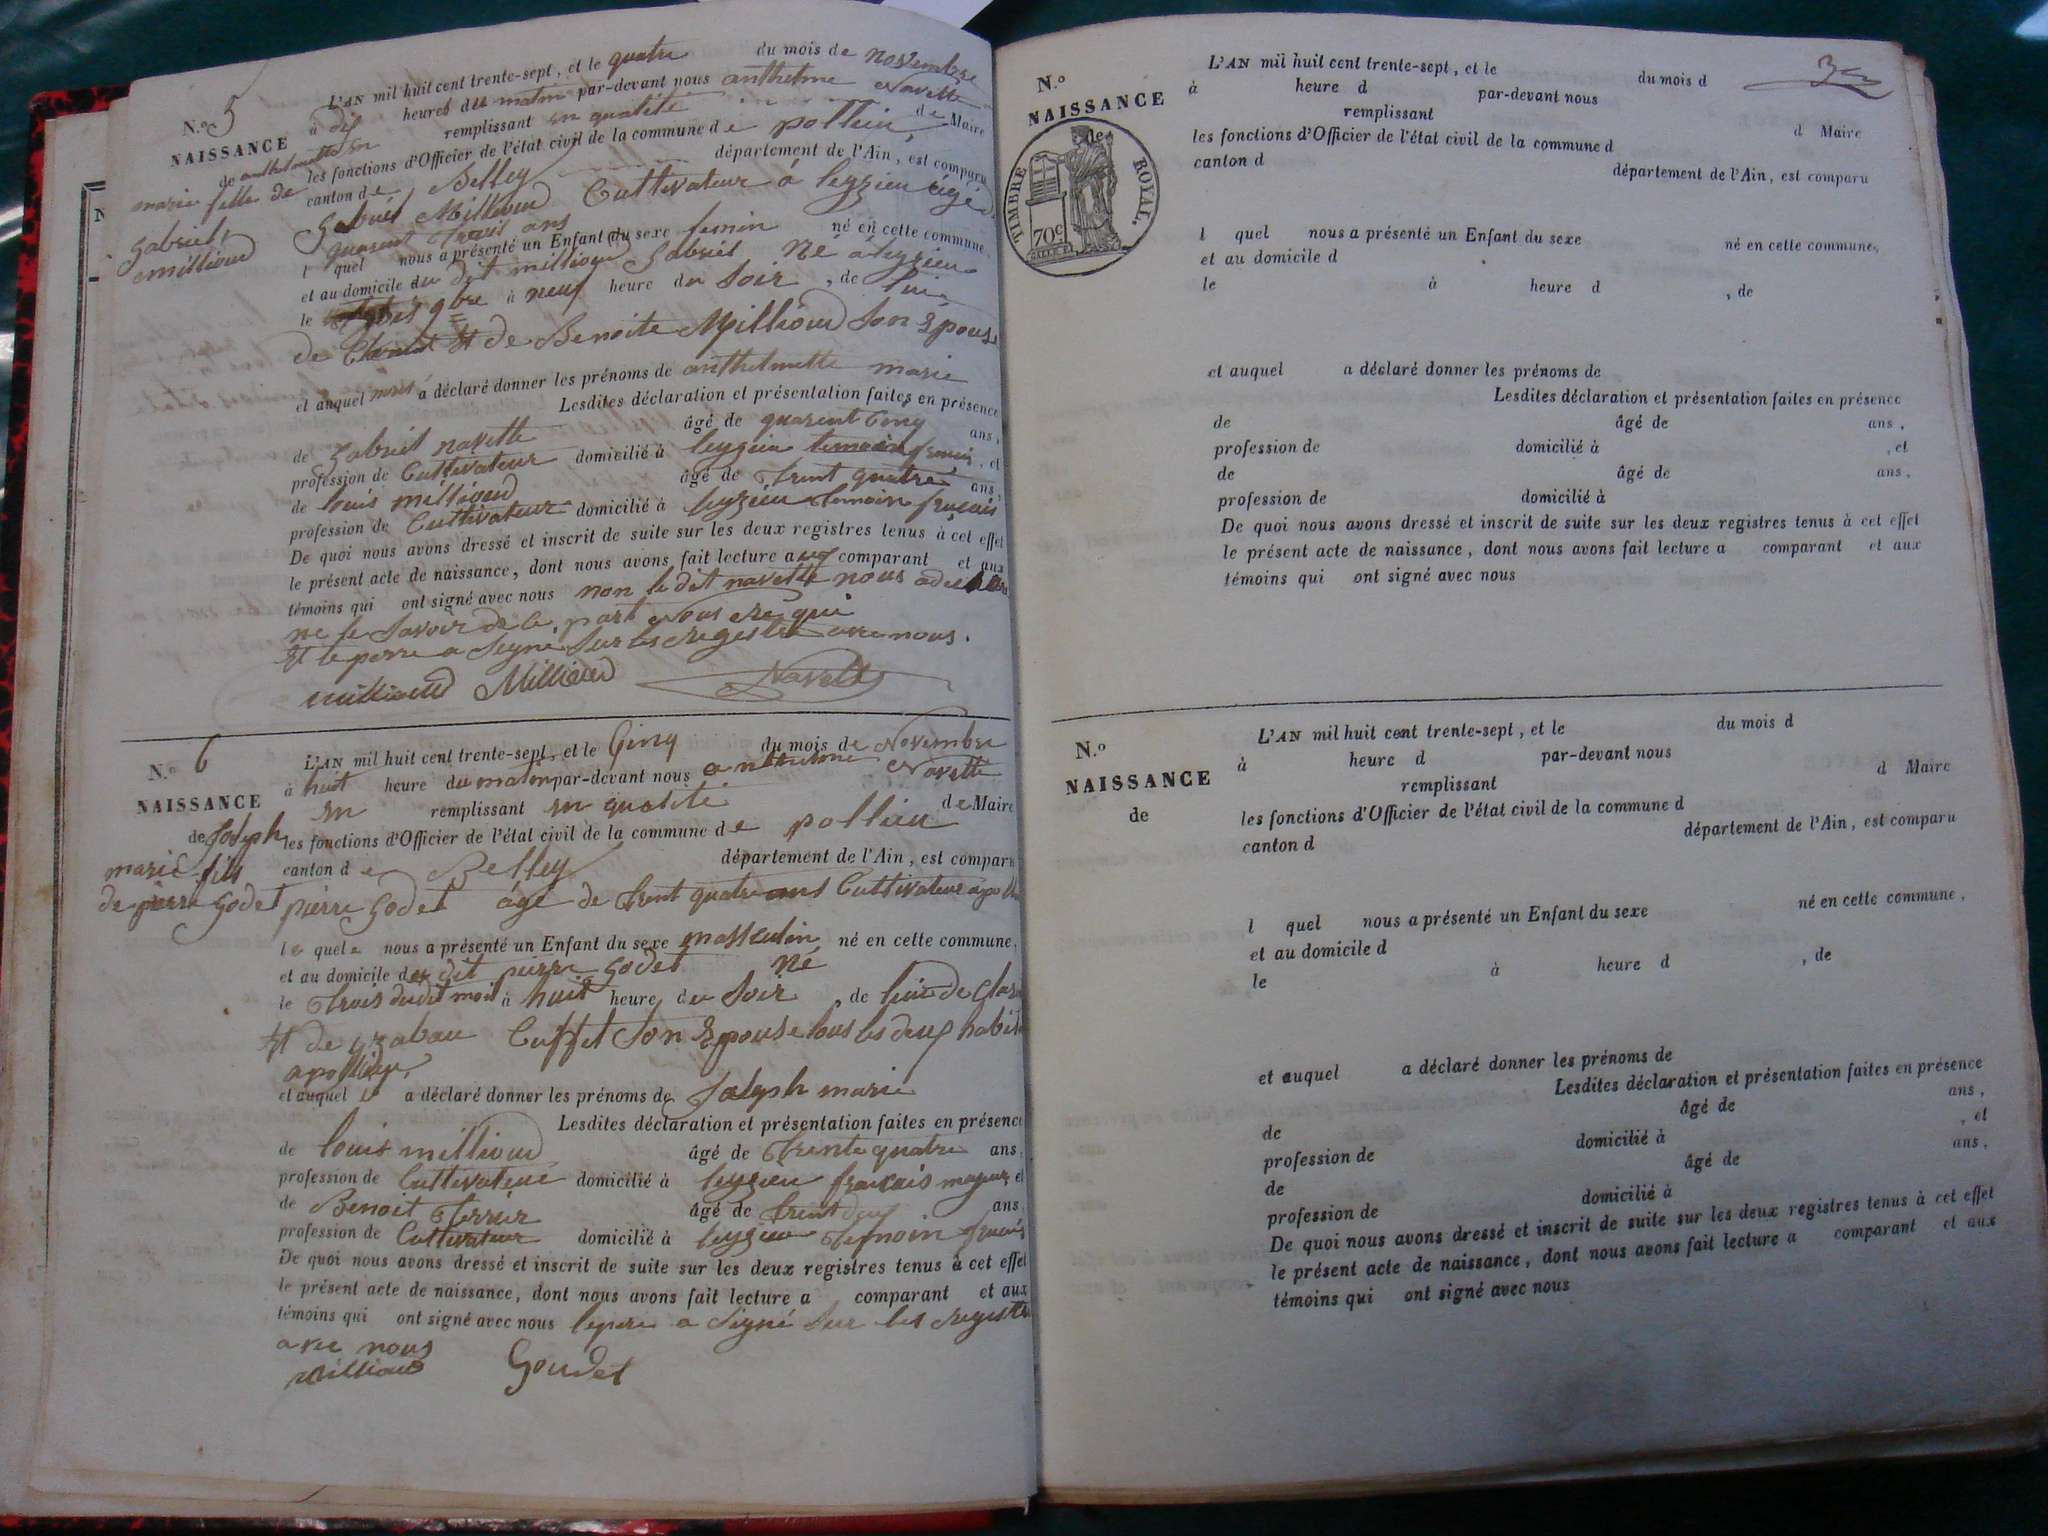 N.o 5
NAISSANCE
de anthelmette
marie fille de
gabriel
millioud
L'AN mil huit cent trente-sept, et le quatre du mois de novembre
à dix heures du matin par-devant nous anthelme Navette
en remplissant en qualité de Maire
les fonctions d'Officier de l'état civil de la commune de pollieu
canton de Belley département de l'Ain, est comparu
gabriel Millioud Cultivateur à leyzieu âgé
quarent trois ans
l quel nous a présenté un Enfant du sexe femin né en cette commune,
et au domicile du dit millioud gabriel Né à leyzieu
le 9bre à neuf heure du Soir, de lui
de et de Benoite Millioud Son Epouse
et auquel a déclaré donner les prénoms de anthelmette marie
Lesdites déclaration et présentation faites en présence
de gabriel navette âgé de quarent Cinq ans,
profession de Cultivateur domicilié à leyzieu temoin francais, et
de louis millioud âgé de trent quatre ans,
profession de Cultivateur domicilié à leyzieu temoin francais
De quoi nous avons dressé et inscrit de suite sur les deux registres tenus à cet effet
le présent acte de naissance, dont nous avons fait lecture aux comparant et aux
témoins qui ont signé avec nous non le dit navette nous a declaré
ne le Savoir de la part Nous requi
Et le perre a Signé Sur les registre avec nous.
millioud Millioud Navette
N.o 6
NAISSANCE
de Joseph
marie fils
de pierre godet
L'AN mil huit cent trente-sept, et le Cinq du mois de Novembre
à huit heure du matin par-devant nous anthelme Navette
en remplissant en qualité de Maire
les fonctions d'Officier de l'état civil de la commune de pollieu
canton de Belley département de l'Ain, est comparu
pierre godet âgé de trent quatre ans Cultivateur a pollieu
le quel nous a présenté un Enfant du sexe masculin né en cette commune,
et au domicile du dit pierre godet né
le trois dudit mois à huit heure du Soir, de lui de
Et de yzabau Cuffet Son Epouse tous les deux
a pollieu
et auquel il a déclaré donner les prénoms de Joseph marie
Lesdites déclaration et présentation faites en présence
de louis millioud âgé de trente quatre ans,
profession de Cultivateur domicilié à leyzieu francais majeur et
de Benoit terrier âgé de trent deux ans,
profession de Cultivateur domicilié à leyzieu temoin francais
De quoi nous avons dressé et inscrit de suite sur les deux registres tenus à cet effet
le présent acte de naissance, dont nous avons fait lecture a comparant et aux
témoins qui ont signé avec nous le pere a Signé Sur les registre
avec nous
millioud Goudet
N.o
NAISSANCE
de
TIMBRE ROYAL.
70c
L'AN mil huit cent trente-sept, et le du mois d
à heure d par-devant nous
remplissant d Maire
les fonctions d'Officier de l'état civil de la commune d
canton d département de l'Ain, est comparu
l quel nous a présenté un Enfant du sexe né en cette commune,
et au domicile d
le à heure d , de
et auquel a déclaré donner les prénoms de
Lesdites déclaration et présentation faites en présence
de âgé de ans,
profession de domicilié à , et
de âgé de ans,
profession de domicilié à
De quoi nous avons dressé et inscrit de suite sur les deux registres tenus à cet effet
le présent acte de naissance, dont nous avons fait lecture a comparant et aux
témoins qui ont signé avec nous
N.o
NAISSANCE
de
L'AN mil huit cent trente-sept, et le du mois d
à heure d par-devant nous
remplissant d Maire
les fonctions d'Officier de l'état civil de la commune d
canton d département de l'Ain, est comparu
l quel nous a présenté un Enfant du sexe né en cette commune,
et au domicile d
le à heure d , de
et auquel a déclaré donner les prénoms de
Lesdites déclaration et présentation faites en présence
de âgé de ans,
profession de domicilié à , et
de âgé de ans,
profession de domicilié à
De quoi nous avons dressé et inscrit de suite sur les deux registres tenus à cet effet
le présent acte de naissance, dont nous avons fait lecture a comparant et aux
témoins qui ont signé avec nous